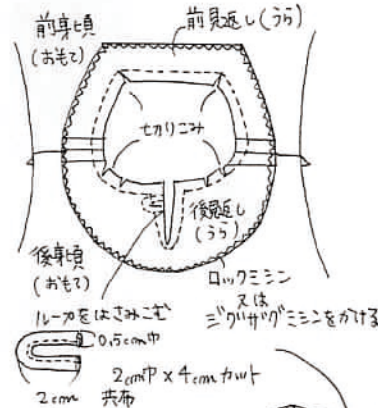 前身頃
(おもて)
前見返し(うら)
切りこみ
後見返し
(うら)
後身頃
(おもて)
ロックミシン
又は
ジグザグミシンをかける
ループをはさみこむ
0.5cm巾
2cm
2cm巾×4cmカット
共布